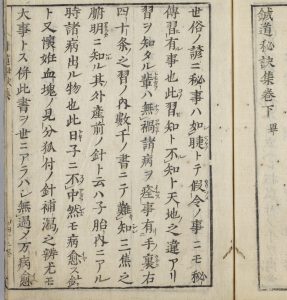 鍼道秘訣集卷下畢
世俗ノ諺ニ秘事ハ如睫トテ假令ノ事ニモ秘
傳習有事也此習知ト不知ト天地之違アリ
習ヲ知タル輩ハ無禍諸病ヲ痊事有手裏右
四十余之習ノ内數千ノ書ニテ難知三焦之
腑明ニ知其外産前ノ針ト云ハ子胎内ニアル
時諸病出ル物也此日子ニ不中然モ病愈ス針
ト又懐妊血塊ノ見分狐付ノ針補瀉之辨尤モ
大事トス併此書ヲ世ニアラハシ無過メ万病愈